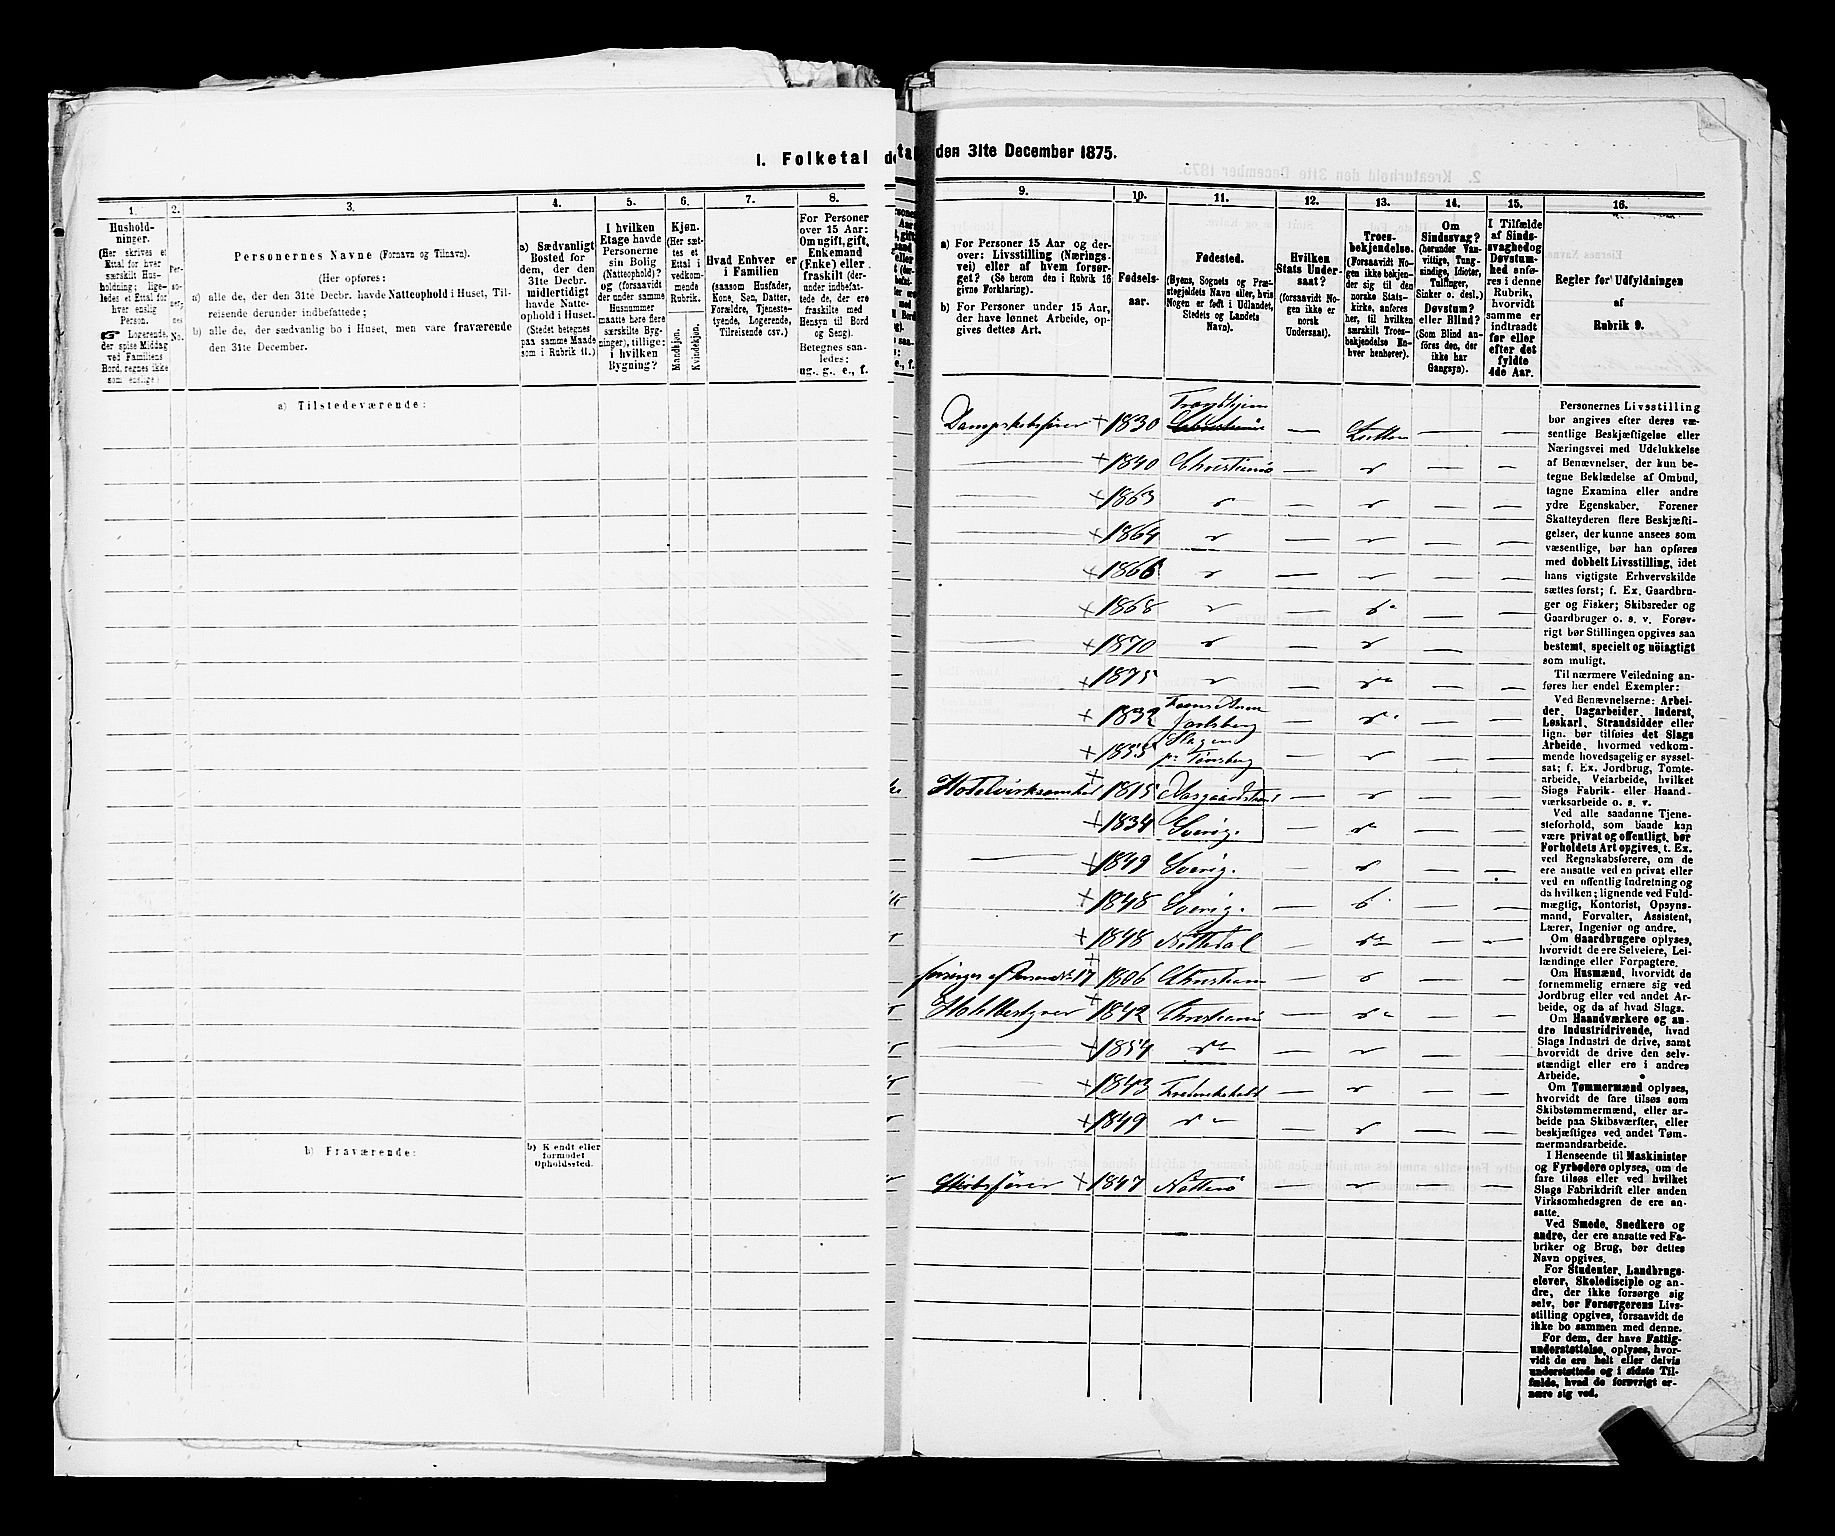 I. Folketal
den 31te December 1875.
1.
Hushold-
ninger.
(Her skrives et
Ettal for hver
særskilt Hus-
holdning; lige-
ledes et Ettal for
hver enslig
Person.
☞ Logerende,
der spise Middag
ved Familiens
Bord, regnes ikke
som enslige)
2.
Per-
so-
ner-
nes
No.
3.
Personernes Navne (Fornavn og Tilnavn).
(Her opføres:
a) alle de, der den 31te Decbr. havde Natteophold i Huset, Til-
reisende derunder indbefattede;
b) alle de, der sædvanlig bo i Huset, men vare fraværende
den 31te December.
4.
a) Sædvanligt
Bosted for
dem, der den
31te Decbr.
midlertidigt
havde Natte-
ophold i Huset.
(Stedet betegnes
paa samme Maade
som i Rubrik 11.)
5.
I hvilken
Etage havde
Personerne
sin Bolig
(Natteophold)?
og (forsaavidt
der under samme
Husnummer
maatte høre flere
særskilte Byg-
ninger), tillige:
i hvilken
Bygning?
6.
Kjøn.
(Her sæt-
tes et
Ettal i
vedkom-
mende
Rubrik.
Mandkjøn.
Kvindekjøn.
7.
Hvad Enhver er
i Familien
(saasom Husfader,
Kone, Søn, Datter,
Forældre, Tjeneste-
tyende, Logerende,
Tilreisende osv.)
8.
For Personer
over 15 Aar:
Om ugift, gift,
Enkemand
(Enke) eller
fraskilt (der-
under indbefat-
tede de, der ere
fraskilte med
Hensyn til Bord
og Seng).
Betegnes saa-
ledes:
ug., g., e., f.
a) Tilstedeværende:
b) Fraværende:
b) Kjendt eller
formodet
Opholdssted.
9.
a) For Personer 15 Aar og der-
over: Livsstilling (Nærings-
vei) eller af hvem forsør-
get? (Se herom den i Rubrik 16
givne Forklaring).
b) For Personer under 15 Aar,
der have lønnet Arbeide, op-
gives dettes Art.
10.
Fødsels-
aar.
11.
Fødested.
(Byens, Sognets og Præ-
stegjeldets Navn eller, hvis
Nogen er født i Udlandet,
Stedets og Landets
Navn).
12.
Hvilken
Stats Under-
saat?
(forsaavidt No-
gen ikke er
norsk
Undersaat).
13.
Troes-
bekjendelse.
(Forsaavidt No-
gen ikke bekjen-
der sig til den
norske Stats-
kirke, anføres
her, til hvilken
særskilt Troes-
bekjendelse En-
hver henhører).
14.
Om
Sindssvag?
(herunder Van-
vittige, Tung-
sindige, Idioter,
Tullinger,
Sinker o. desl.)
Døvstum?
eller Blind?
(Som Blind an-
føres den, der
ikke har
Gangsyn).
15.
I Tilfælde
af Sinds-
svaghed og
Døvstum-
hed anfø-
res i denne
Rubrik,
hvorvidt
samme er
indtraadt
før eller
efter det
fyldte
4de Aar.
16.
Regler for Udfyldningen
af
Rubrik 9.
Dampskibsfører × 1830 Trondhjem — Luther — —
× 1840 Christiania — — —
× 1863 — — —
× 1864 — — —
× 1866 — — —
× 1868 — — —
× 1870 — — —
× 1875 — — —
× 1832 Jarlsberg — — —
× 1855 Slagen
pr Tønsberg — — —
Hotelvirksomhed × 1815 Aasgaardstrand — — —
× 1834 Sverig. — — —
× 1849 Sverig. — — —
× 1848 Sverig. — — —
× 1848 Nittedal — — —
forsørges af Person No 17 × 1806 Christiania — — —
× 1842 Christiania — — —
× 1854 — — —
× 1843 Frederikshald — — —
× 1849 — — —
Skibsfører × 1847 Nøtterø — — —
Personernes Livsstilling
bør angives efter deres væ-
sentlige Beskjæftigelse eller
Næringsvei med Udelukkelse
af Benævnelser, der kun be-
tegne Beklædelse af Ombud,
tagne Examina eller andre
ydre Egenskaber. Forener
Skatteyderen flere Beskjæfti-
gelser, der kunne ansees som
væsentlige, bør han opføres
med dobbelt Livsstilling, idet
hans vigtigste Erhvervskilde
sættes først; f. Ex. Gaardbru-
ger og Fisker; Skibsreder og
Gaardbruger o. s. v. Forøv-
rigt bør Stillingen opgives saa
bestemt, specielt og nöiagtigt
som muligt.
Til nærmere Veiledning an-
føres her endel Exempler:
Ved Benævnelserne: Arbei-
der, Dagarbeider, Inderst,
Løskarl, Strandsidder eller
lign. bør tilføies det Slags
Arbeide, hvormed vedkom-
mende hovedsagelig er syssel-
sat; f. Ex. Jordbrug, Tomte-
arbeide, Veiarbeide, hvilket
Slags Fabrik- eller Haand-
værksarbeide o. s. v.
Ved alle saadanne Tjene-
steforhold, som baade kan
være privat og offentligt, bør
Forholdets Art opgives, f. Ex.
ved Regnskabsførere, om de
ere ansatte ved en privat eller
ved en offentlig Indretning og
da hvilken; lignende ved Fuld-
mægtig, Kontorist, Opsyns-
mand, Forvalter, Assistent,
Lærer, Ingeniør og andre.
Om Gaardbrugere oplyses,
hvorvidt de ere Selveiere, Lei-
lændinge eller Forpagtere.
Om Husmænd, hvorvidt de
fornemmelig ernære sig ved
Jordbrug eller ved andet Ar-
beide, og da af hvad Slags.
Om Haandværkere og an-
dre Industridrivende, hvad
Slags Industri de drive, samt
hvorvidt de drive den selv-
stændigt eller ere i andres
Arbeide.
Om Tømmermænd oplyses,
hvorvidt de fare tilsøs som
Skibstømmermænd, eller ar-
beide paa Skibsværfter, eller
beskjæftiges ved andet Tøm-
mermandsarbeide.
I Henseende til Maskinister
og Fyrbødere oplyses, om de
fare tilsøs eller ved hvilket
Slags Fabrikdrift eller anden
Virksomhedsgren de ere an-
satte.
Ved Smede, Snedkere og
andre, der ere ansatte ved Fa-
briker og Brug, bør dettes
Navn opgives.
For Studenter, Landbrugs-
elever, Skoledisciple og an-
dre, der ikke forsørge sig
selv, bør Forsørgerens Livs-
stilling opgives, forsaavidt de
ikke bo sammen med denne.
For dem, der have Fattig-
understøttelse, oplyses, hvor-
vidt de ere helt eller delvis
understøttede og i sidste Til-
fælde, hvad de forøvrigt er-
nære sig ved.